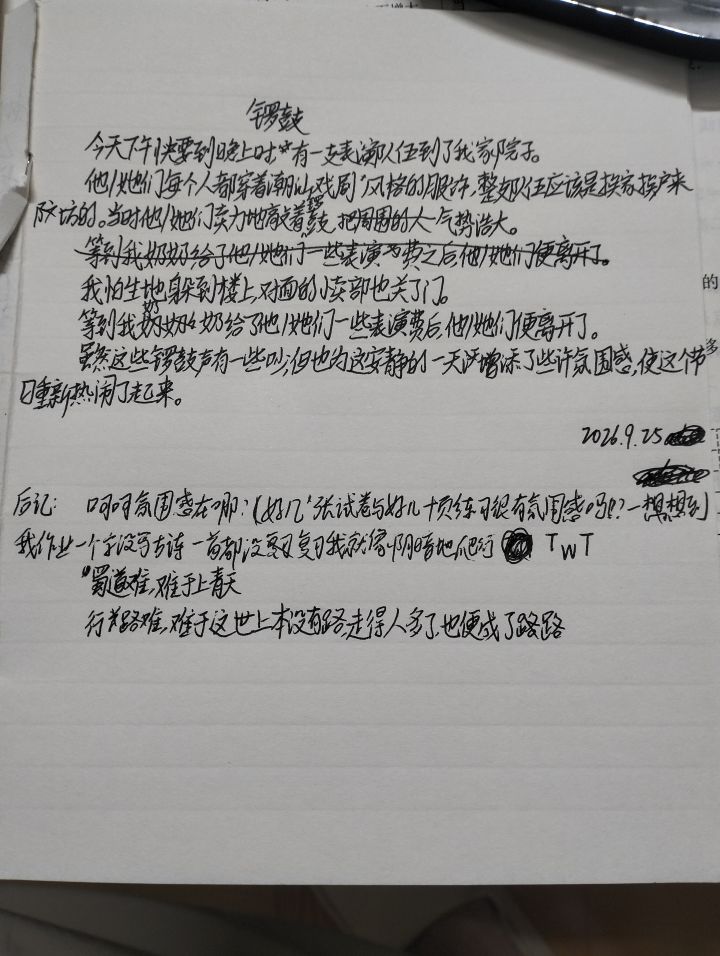 锣鼓
今天下午快要到晚上时有一支表演队伍到了我家院子。
他/她们每个人都穿着潮汕戏剧风格的服饰,整如队伍应该是挨家挨户来
的。当时他/她们卖力地敲着锣鼓,把周围的人气势浩大。
等到我奶奶给了他/她们一些表演费之后,他/她们便离开了。
我怕生地躲到楼上,对面的小卖部也关了门。
等到我奶奶给了他/她们一些表演费后,他/她们便离开了。
虽然这些锣鼓声有一些吵,但也为这安静的一天增添了些许氛围感,使这个节
日重新热闹了起来。
2026.9.25
后记: 呵呵氛围感在哪?(好几张试卷与好几十页练习很有氛围感吗!?一想想到
我作业一个字没写古诗一首都没复习我就像阴暗地爬行 TWT
蜀道难,难于上青天
行路难,难于这世上本没有路,走得人多了,也便成了路路